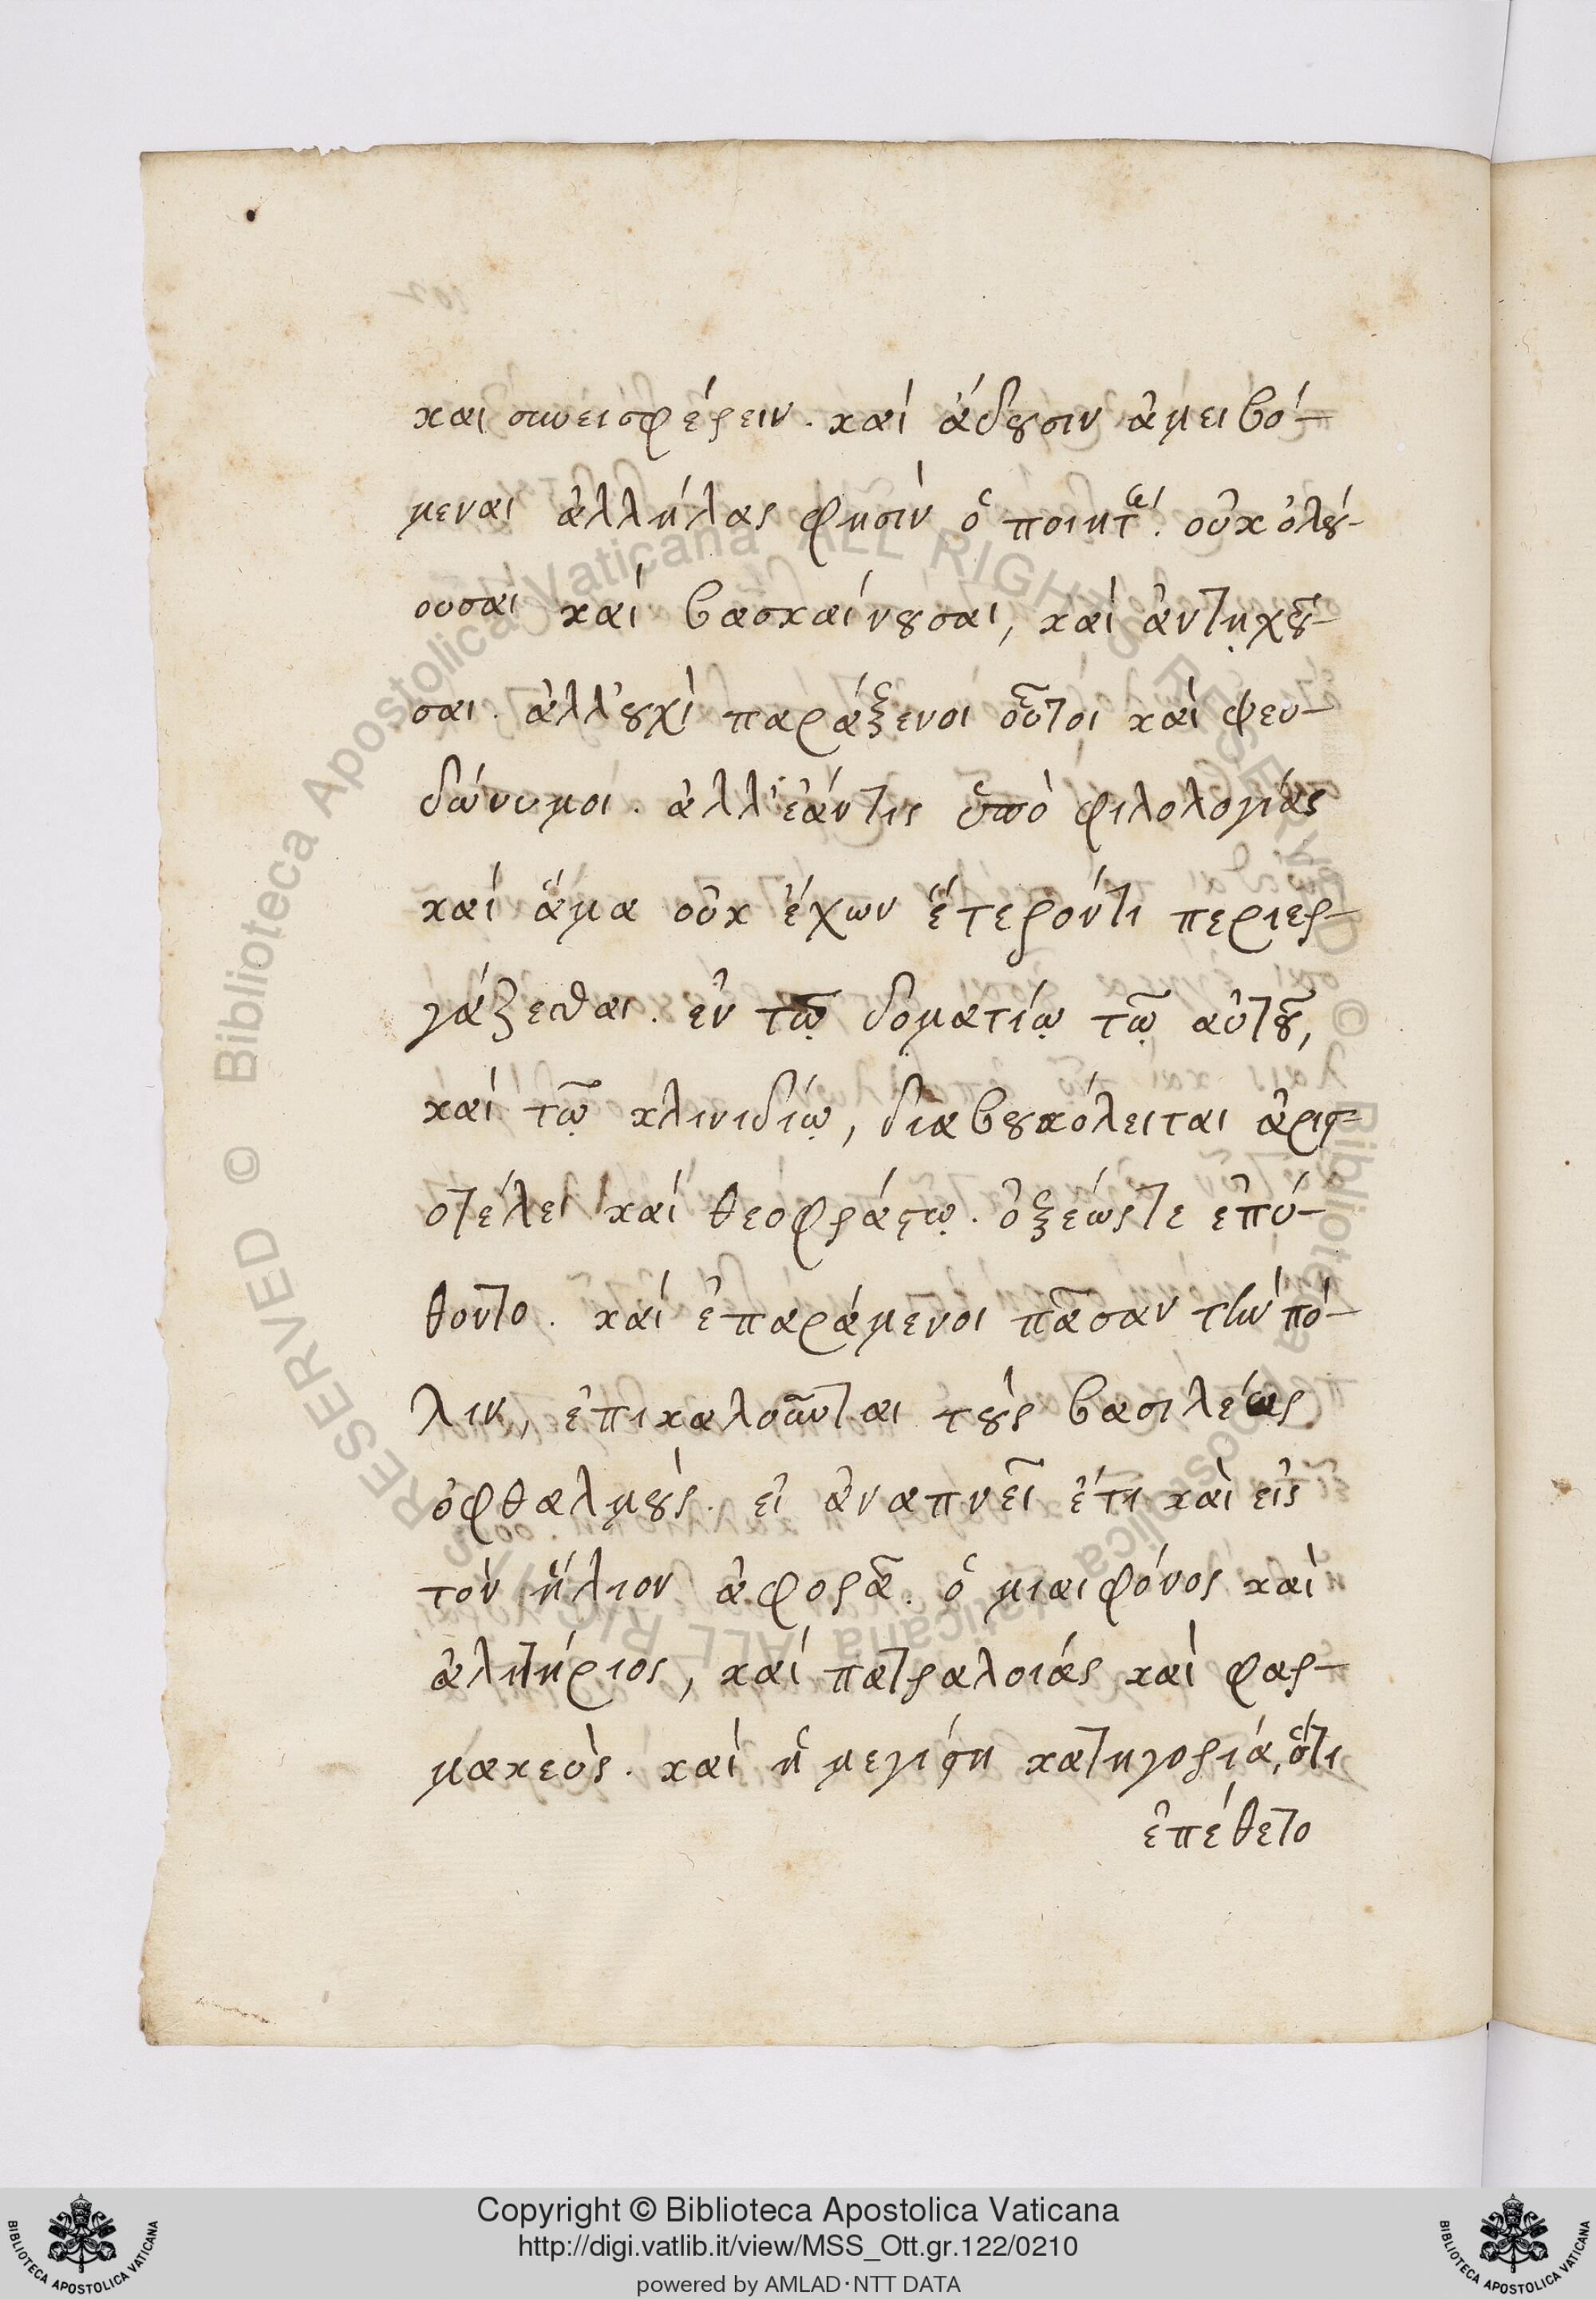 και συνεισφέρειν. καί ἄδουσιν ἀμειβό-
μεναι ἀλλήλας φησὶν ὁ ποιητὴς. οὐκ ὀλύ-
ουσαι καί βασκαίνουσαι, καὶ ἀντηχοῦ-
σαι. ἀλλ' οὐχὶ παράξενοι οὗτοι καὶ ψευ-
δώνυμοι. ἀλλ' ἐάν τις ὑπὸ φιλολογίας
καί ἅμα οὐκ ἔχων ἕτερόν τι περιερ-
γάζεσθαι. ἐν τῷ δοματίῳ τῷ αὑτοῦ,
καί τῷ κλινιδίῳ, διαβουκόλειται ἀρισ-
στέλει καί θεοφράστῳ. ὀξέως τε ἐπύ-
θοντο. καί ἐπαράμενοι πᾶσαν τὴν πό-
λιν, ἐπικαλοῦνται τοὺς βασιλέως
ὀφθαλμοὺς. εἰ ἀναπνεῖ ἔτι καὶ εἰς
τὸν ἥλιον ἀφορᾶ. ὁ μιαιφόνος καὶ
ἀλητήριος, καί πατραλοιάς καὶ φαρ-
μακεὺς. καὶ ἡ μεγίστη κατηγορία, ὅτι
ἐπέθετο
Copyright © Biblioteca Apostolica Vaticana
http://digi.vatlib.it/view/MSS_Ott.gr.122/0210
powered by AMLAD·NTT DATA
BIBLIOTECA APOSTOLICA VATICANA
BIBLIOTECA APOSTOLICA VATICANA
© Biblioteca Apostolica Vaticana ALL RIGHTS RESERVED
© Biblioteca Apostolica Vaticana ALL RIGHTS RESERVED